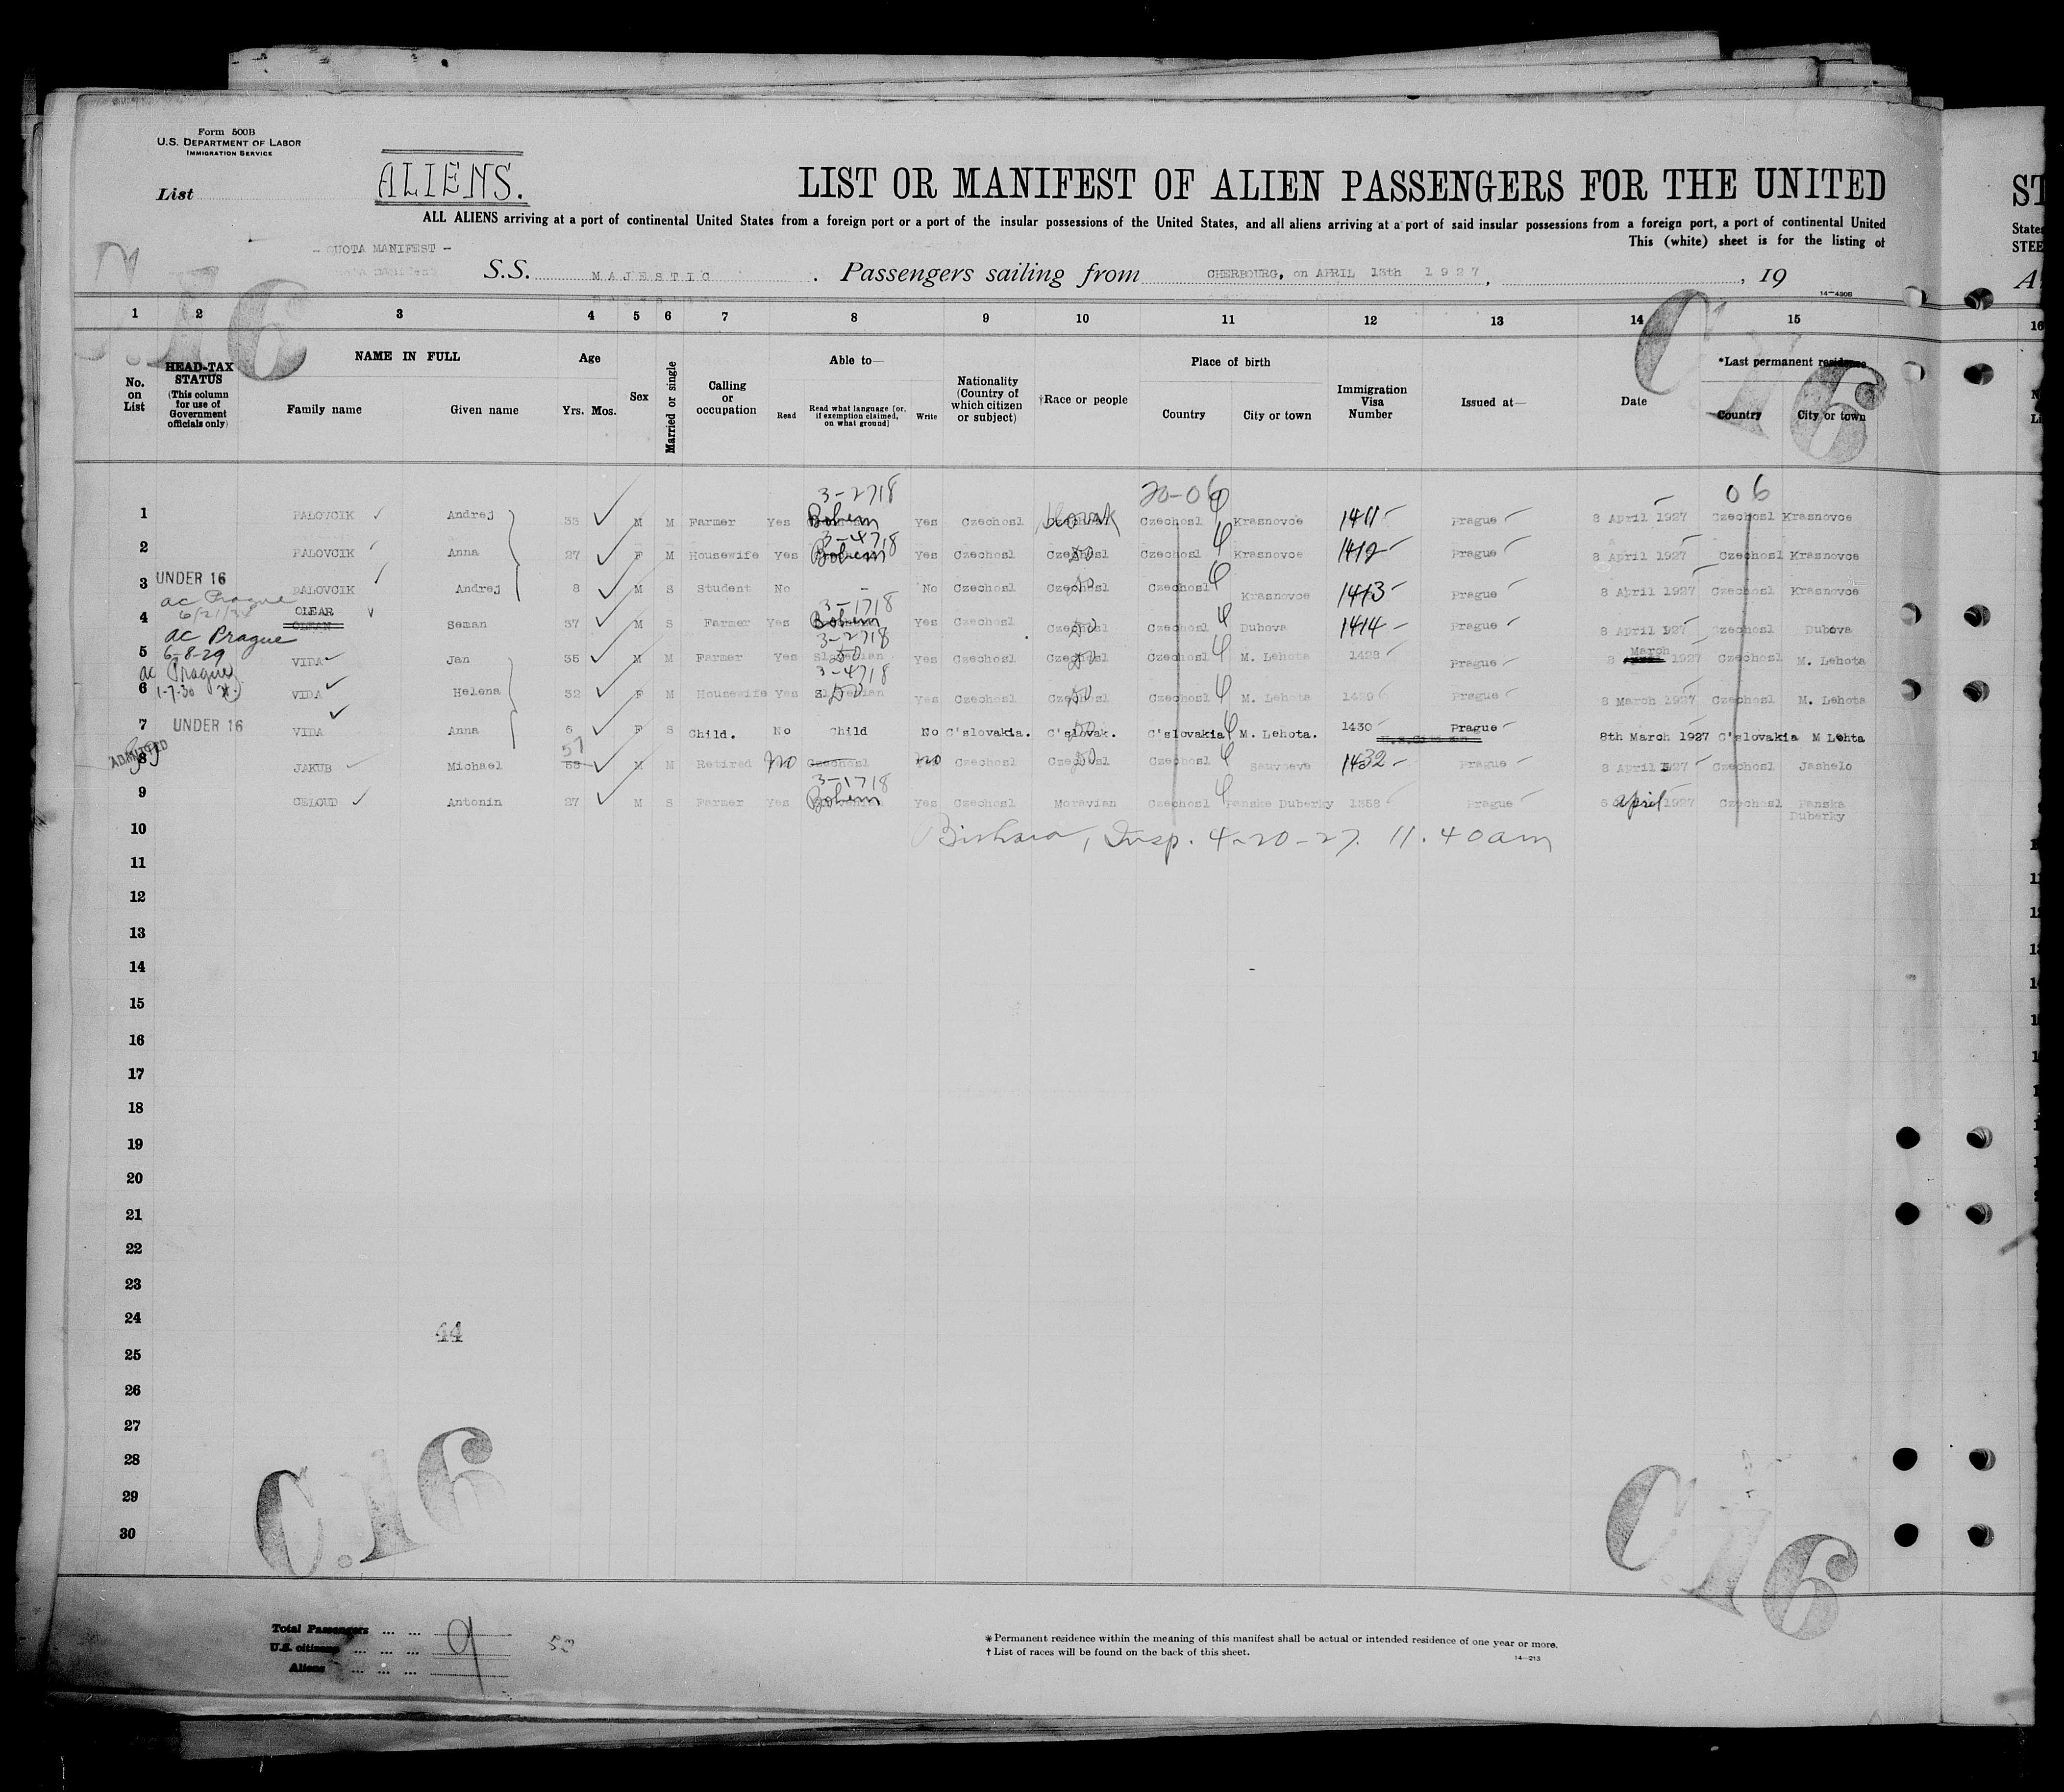 Form 500B
U.S. DEPARTMENT OF LABOR
IMMIGRATION SERVICE
List
ALIENS.
LIST OR MANIFEST OF ALIEN PASSENGERS FOR THE UNITED
ST
ALL ALIENS arriving at a port of continental United States from a foreign port or a port of the insular possessions of the United States, and all aliens arriving at a port of said insular possessions from a foreign port, a port of continental United
States
This (white) sheet is for the listing of
STEE
- QUOTA MANIFEST -
S.S. MAJESTIC . Passengers sailing from CHERBOURG, on APRIL 13th 1927, , 19
14-430B
C.16
C 16
1 2 3 4 5 6 7 8 9 10 11 12 13 14 15 16
No. on List
HEAD-TAX STATUS (This column for use of Government officials only)
NAME IN FULL
Family name Given name
Age
Yrs. Mos.
Sex
Married or single
Calling or occupation
Able to—
Read Read what language [or, if exemption claimed, on what ground] Write
Nationality (Country of which citizen or subject)
†Race or people
Place of birth
Country City or town
Immigration Visa Number
Issued at—
Date
*Last permanent residence
Country City or town
3-2718 20-06 06
1 PALOVCIK Andrej 33 M M Farmer Yes Bohem Yes Czechosl Slovak Czechosl Krasnovce 1411 Prague 8 April 1927 Czechosl Krasnovce
3-4718
2 PALOVCIK Anna 27 F M Housewife Yes Bohem Yes Czechosl Czechosl Czechosl Krasnovce 1412 Prague 8 April 1927 Czechosl Krasnovce
3 UNDER 16 PALOVCIK Andrej 8 M S Student No No Czechosl Czechosl Czechosl Krasnovce 1413 Prague 8 April 1927 Czechosl Krasnovce
ac Prague
3-1718
4 OLEAR Seman 37 M S Farmer Yes Bohem Yes Czechosl Czechosl Czechosl Dubova 1414 Prague 8 April 1927 Czechosl Dubova
ac Prague 6-8-29
3-2718
5 VIDA Jan 35 M M Farmer Yes Yes Czechosl Czechosl Czechosl M. Lehota 1428 Prague 8 March 1927 Czechosl M. Lehota
ac Prague 1-7-30
3-4718
6 VIDA Helena 32 F M Housewife Yes Yes Czechosl Czechosl Czechosl M. Lehota 1429 Prague 8 March 1927 Czechosl M. Lehota
7 UNDER 16 VIDA Anna 6 F S Child. No Child No C'slovakia. C'slovak. C'slovakia M. Lehota. 1430 Prague 8th March 1927 C'slovakia M Lehta
ADMITTED
57
8 JAKUB Michael 58 M M Retired no Czechosl no Czechosl Czechosl Czechosl 1432 Prague 8 April 1927 Czechosl Jashelo
3-1718
9 CELOUD Antonin 27 M S Farmer Yes Bohem Yes Czechosl Moravian Czechosl Panske Duberky 1358 Prague 6 April 1927 Czechosl Panska Duberky
10
Insp. 4-20-27. 11.40am
11
12
13
14
15
16
17
18
19
20
21
22
23
24
44
25
26
27
28
29
30
C.16
C 16
Total Passengers ... ... 9
U.S. citizens ... ... ...
Aliens ... ... ...
52
*Permanent residence within the meaning of this manifest shall be actual or intended residence of one year or more.
† List of races will be found on the back of this sheet.
14-213